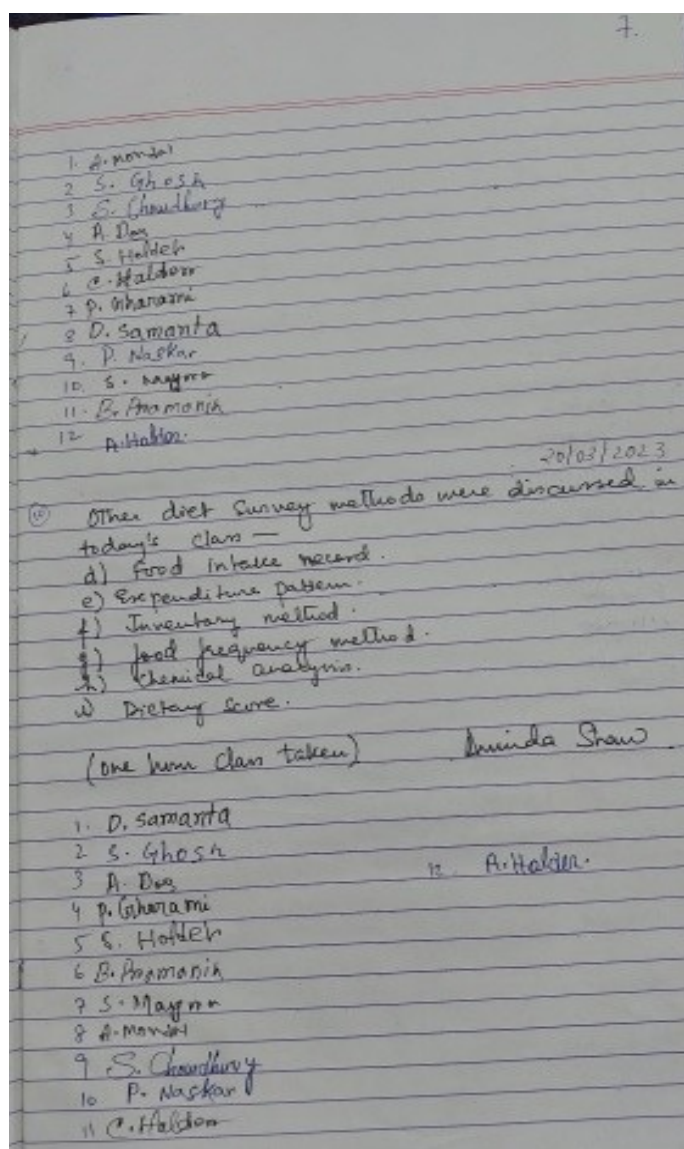 7.
1. A. Mondal
2 S. Ghosh
3 S. Choudhury
4 A. Das
5 S. Halder
6 C. Halder
7 P. Gharami
8 D. Samanta
9. P. Naskar
10. S.
11. B. Pramanik
12 A. Halder.
20/03/2023
Other diet Survey methods were discussed in
today's class —
d) Food intake record.
e) Expenditure pattern.
f) Inventory method.
g) food frequency method.
h) Chemical analysis.
i) Dietary Score.
(one hour class taken) Shaw
1. D. Samanta
2 S. Ghosh
3 A. Das 12. A. Halder.
4 P. Gharami
5 S. Halder
6 B. Pramanik
7 S.
8 A. Mondal
9 S. Choudhury
10 P. Naskar
11 C. Halder